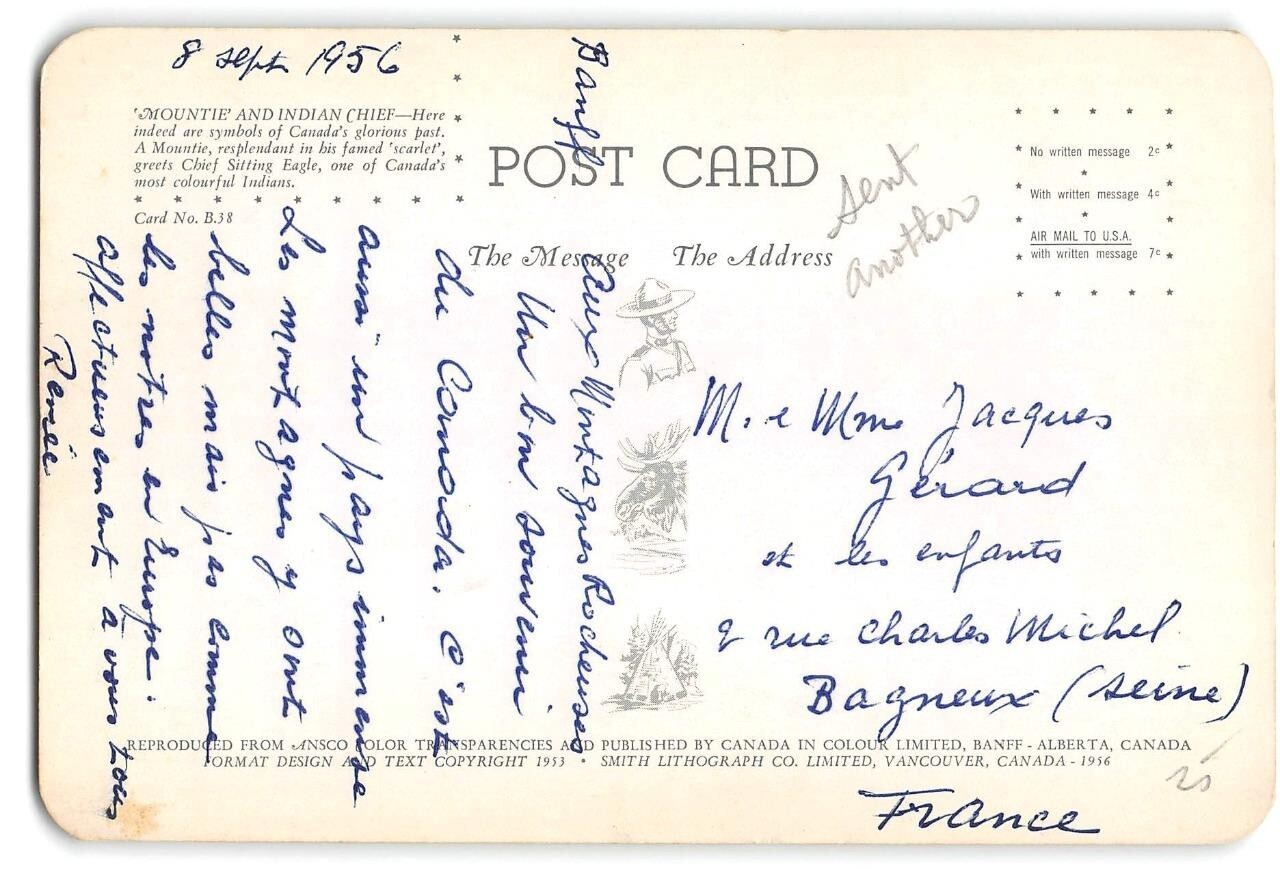 8 sept 1956
'MOUNTIE' AND INDIAN CHIEF—Here
indeed are symbols of Canada's glorious past.
A Mountie, resplendent in his famed 'scarlet',
greets Chief Sitting Eagle, one of Canada's
most colourful Indians.
Card No. B.38
POST CARD
The Message
The Address
sent
another
No written message 2c
With written message 4c
AIR MAIL TO U.S.A.
with written message 7c
Banff
aux Montagnes Rocheuses
Un bon souvenir
du Canada. C'est
aussi un pays immense
Les montagnes y ont
belles mais pas comme
les notres en Europe.
affectueusement à vous tous
Renée
M. e Mme Jacques
Gérard
et les enfants
9 rue Charles Michel
Bagneux (Seine)
France
REPRODUCED FROM ANSCO COLOR TRANSPARENCIES AND PUBLISHED BY CANADA IN COLOUR LIMITED, BANFF - ALBERTA, CANADA
FORMAT DESIGN AND TEXT COPYRIGHT 1953 • SMITH LITHOGRAPH CO. LIMITED, VANCOUVER, CANADA - 1956